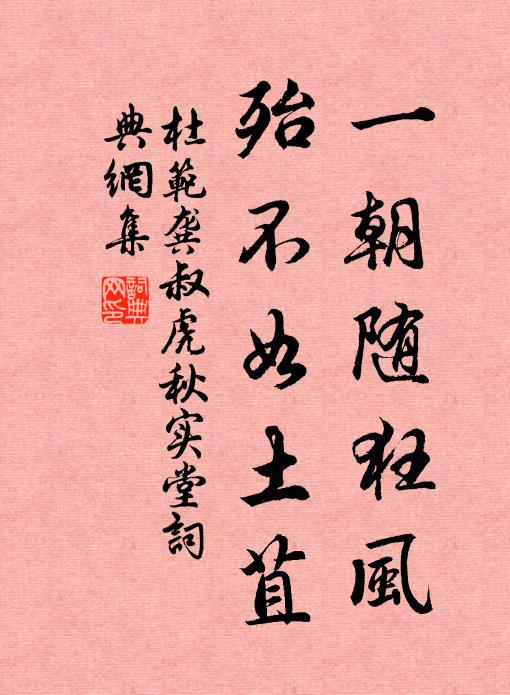 一朝随狂風
殆不如土苴
杜範龚叔虎秋实堂詞
典網集
詞典
网印